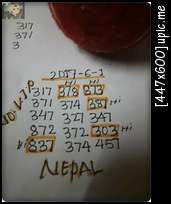 317
371
3
2017-6-1
NO VIP
317 378 873
371 374 387 Hi
347 327 347
872 372 303 Hi
Vi 837 374 457
NEPAL
[447x600] upic.me